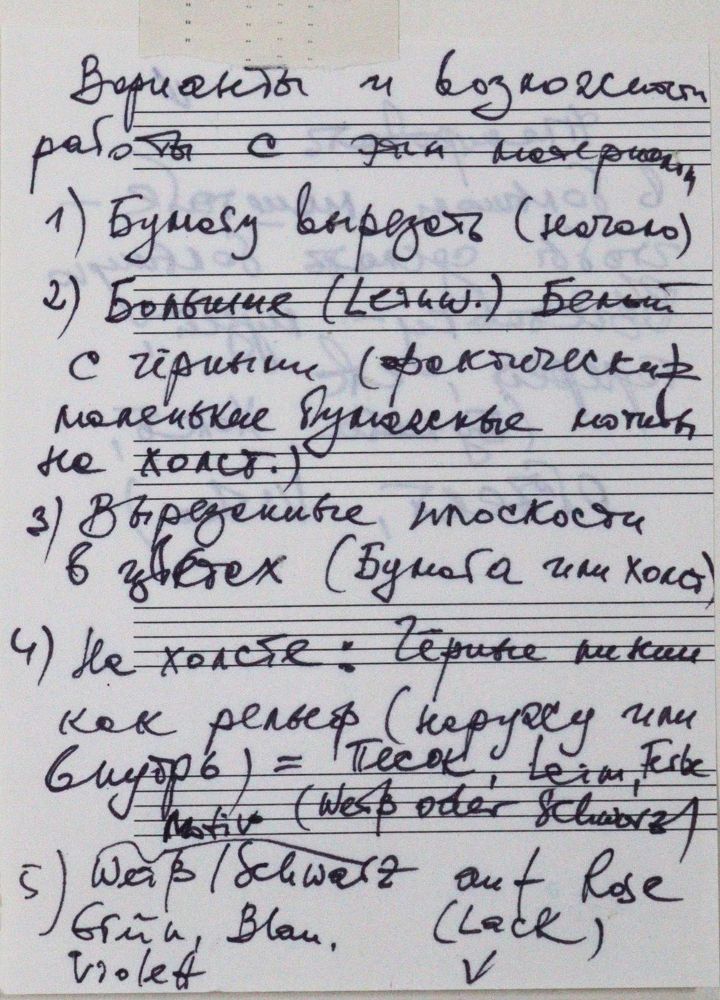 Варианты и возможности
работы с эти материалами
1) Бумагу вырезать (начало)
2) Большие (Leinw.) Белый
с чёрными (фактически
маленькие бумажные мотивы
на холст.)
3) Вырезанные плоскости
в цветах (Бумага или холст)
4) На холсте: Чёрные линии
как рельеф (наружу или
внутрь) = Песок, Leim, Farbe
Motiv (Weiß oder Schwarz)
5) Weiß/Schwarz auf Rose
Grün, Blau, (Lack)
Violett